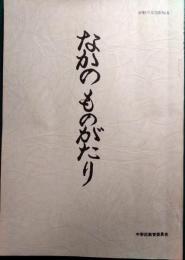 なかの ものがたり
中野区教育委員会